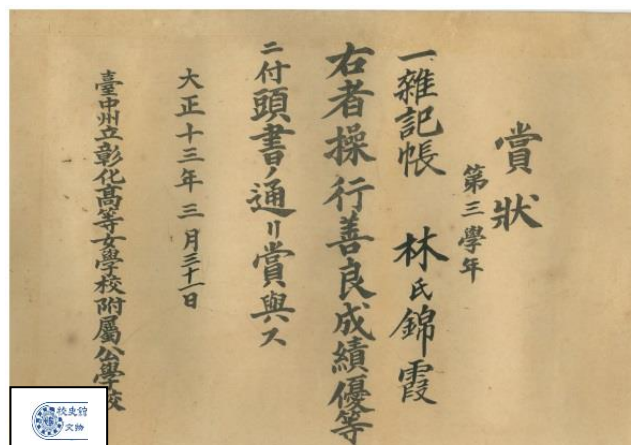 賞狀
第三學年
一雜記帳 林氏錦霞
右者操行善良成績優等
ニ付頭書ノ通リ賞與ス
大正十三年三月三十一日
臺中州立彰化高等女學校附屬公學校
校史館
文物